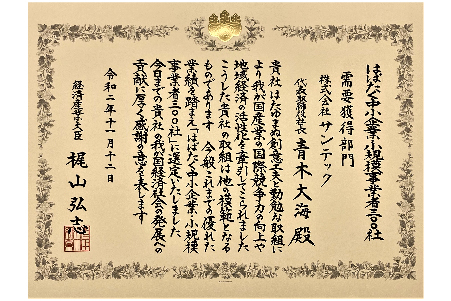 はばたく中小企業・小規模事業者三〇〇社
需要獲得部門
株式会社 サンテック
代表取締役社長 青木大海 殿
貴社はたゆまぬ創意工夫と勤勉な取組に
より我が国産業の国際競争力の向上や
地域経済の活性化を牽引してこられました
こうした貴社の取組は他の模範となる
ものであります 今般これまでの優れた
業績を踏まえ「はばたく中小企業・小規模
事業者三〇〇社」に選定いたしました
今日までの貴社の我が国経済社会の発展への
貢献に厚く感謝の意を表します
令和二年十一月十二日
経済産業大臣 梶山弘志